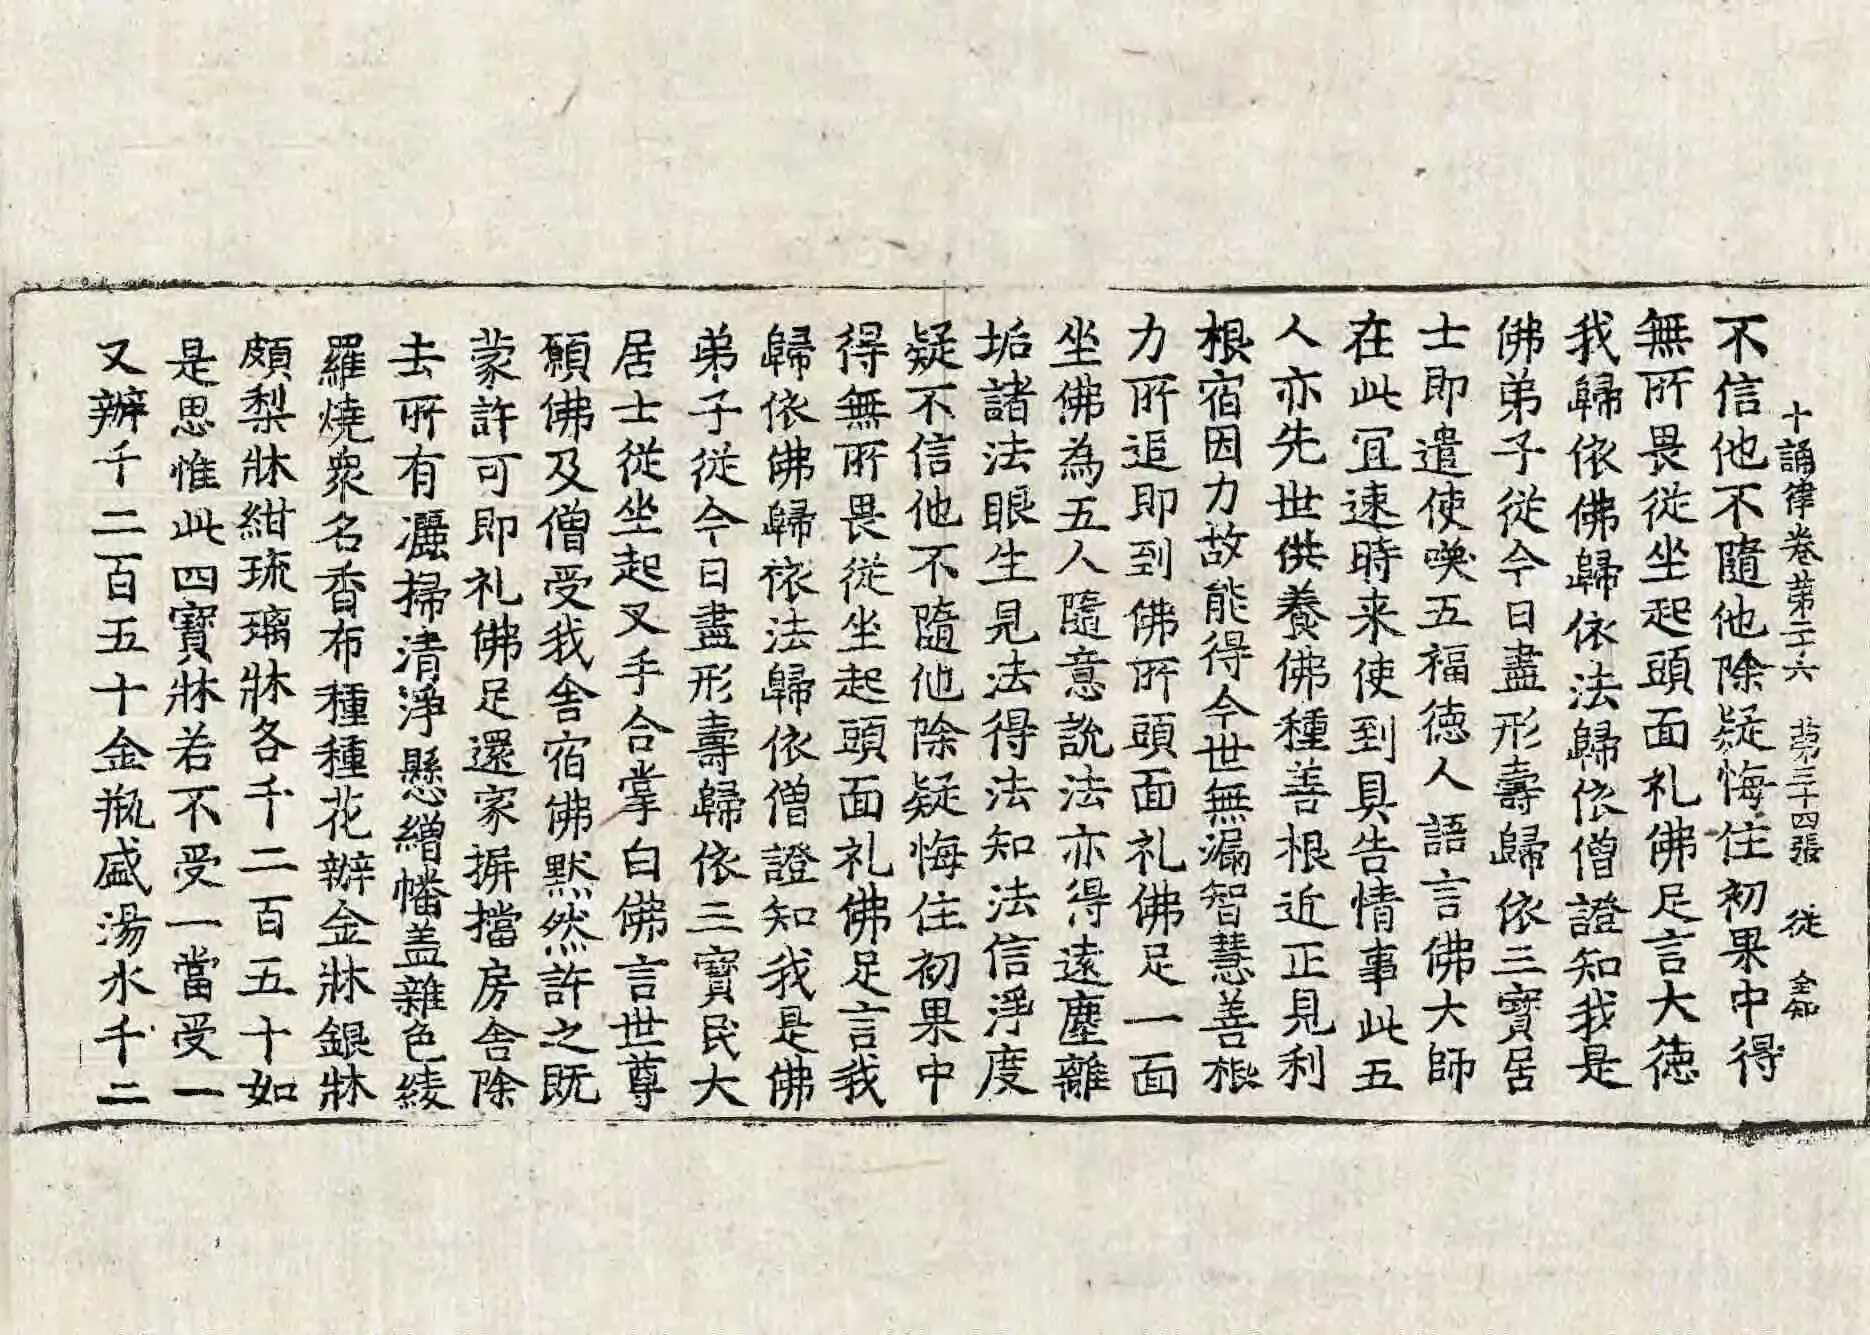 十誦律卷第二十六 第三十四張 從 金知
不信他不隨他除疑悔住初果中得
無所畏從坐起頭面礼佛足言大徳
我歸依佛歸依法歸依僧證知我是
佛弟子從今日盡形壽歸依三寶居
士即遣使喚五福徳人語言佛大師
在此冝速時来使到具告情事此五
人亦先世供養佛種善根近正見利
根宿因力故能得今世無漏智慧善根
力所追即到佛所頭面礼佛足一面
坐佛為五人隨意說法亦得遠塵離
垢諸法眼生見法得法知法信淨度
疑不信他不隨他除疑悔住初果中
得無所畏從坐起頭面礼佛足言我
歸依佛歸依法歸依僧證知我是佛
弟子從今日盡形壽歸依三寶民大
居士從坐起叉手合掌白佛言世尊
願佛及僧受我舍宿佛默然許之既
蒙許可即礼佛足還家摒擋房舍除
去所有灑掃清淨懸繒幡盖雜色綾
羅燒衆名香布種種花辦金牀銀牀
頗梨牀紺琉璃牀各千二百五十如
是思惟此四寶牀若不受一當受一
又辦千二百五十金瓶盛湯水千二